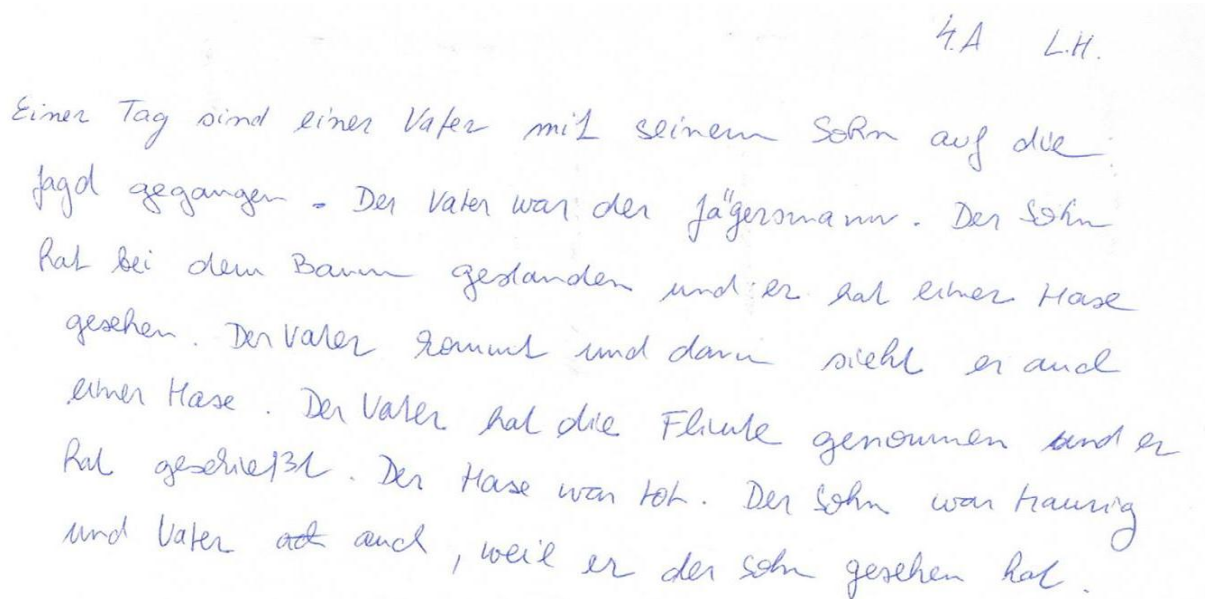 4.A L.H.
Einer Tag sind einer Vater mit seinem Sohn auf die
Jagd gegangen. Der Vater war der Jägersmann. Der Sohn
hat bei dem Baum gestanden und er hat einer Hase
gesehen. Der Vater kommt und dann sieht er auch
einer Hase. Der Vater hat die Flinte genommen und er
hat geschießt. Der Hase war tot. Der Sohn war traurig
und Vater auch, weil er der Sohn gesehen hat.